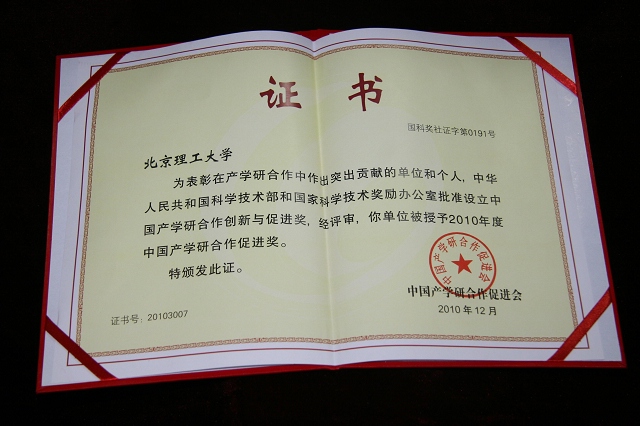 证书
国科奖社证字第0191号
北京理工大学
为表彰在产学研合作中作出突出贡献的单位和个人，中华
人民共和国科学技术部和国家科学技术奖励办公室批准设立中
国产学研合作创新与促进奖，经评审，你单位被授予2010年度
中国产学研合作促进奖。
特颁发此证。
中国产学研合作促进会
中国产学研合作促进会
2010年12月
证书号：20103007